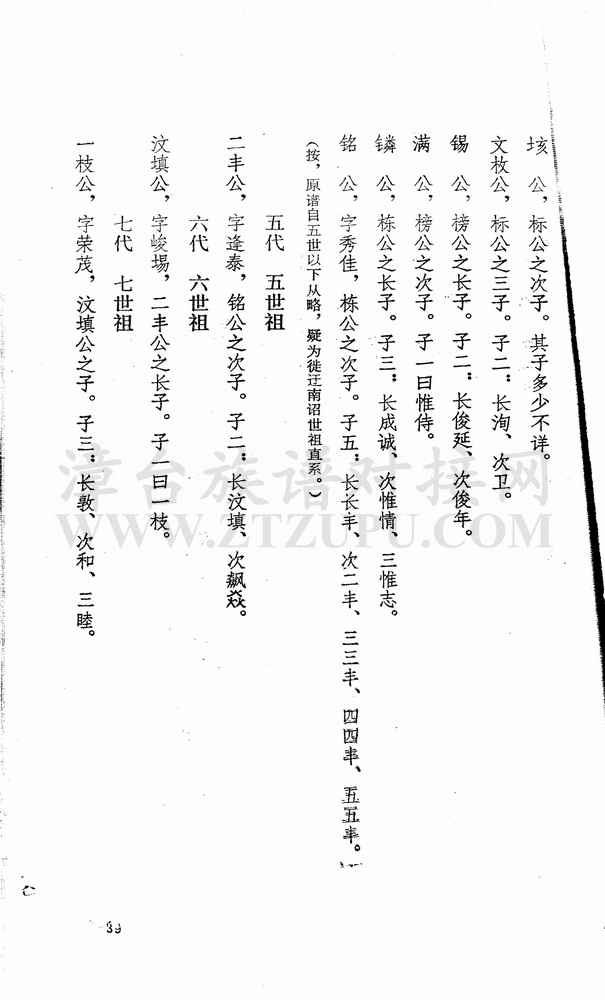 垓　公，标公之次子。其子多少不详。
文枚公，标公之三子。子二：长洵、次卫。
锡　公，榜公之长子。子二：长俊延、次俊年。
满　公，榜公之次子。子一曰惟侍。
鏻　公，栋公之长子。子三：长成诚、次惟情、三惟志。
铭　公，字秀佳，栋公之次子。子五：长长丰、次二丰、三三丰、四四丰、五五丰。
（按，原谱自五世以下从略，疑为徙迁南诏世祖直系。）
五代　五世祖
二丰公，字逢泰，铭公之次子。子二：长汶填、次飙焱。
六代　六世祖
汶填公，字峻埸，二丰公之长子。子一曰一枝。
七代　七世祖
一枝公，字荣茂，汶填公之子。子三：长敦、次和、三睦。
39
漳台族谱对接网
WWW.ZTZUPU.COM